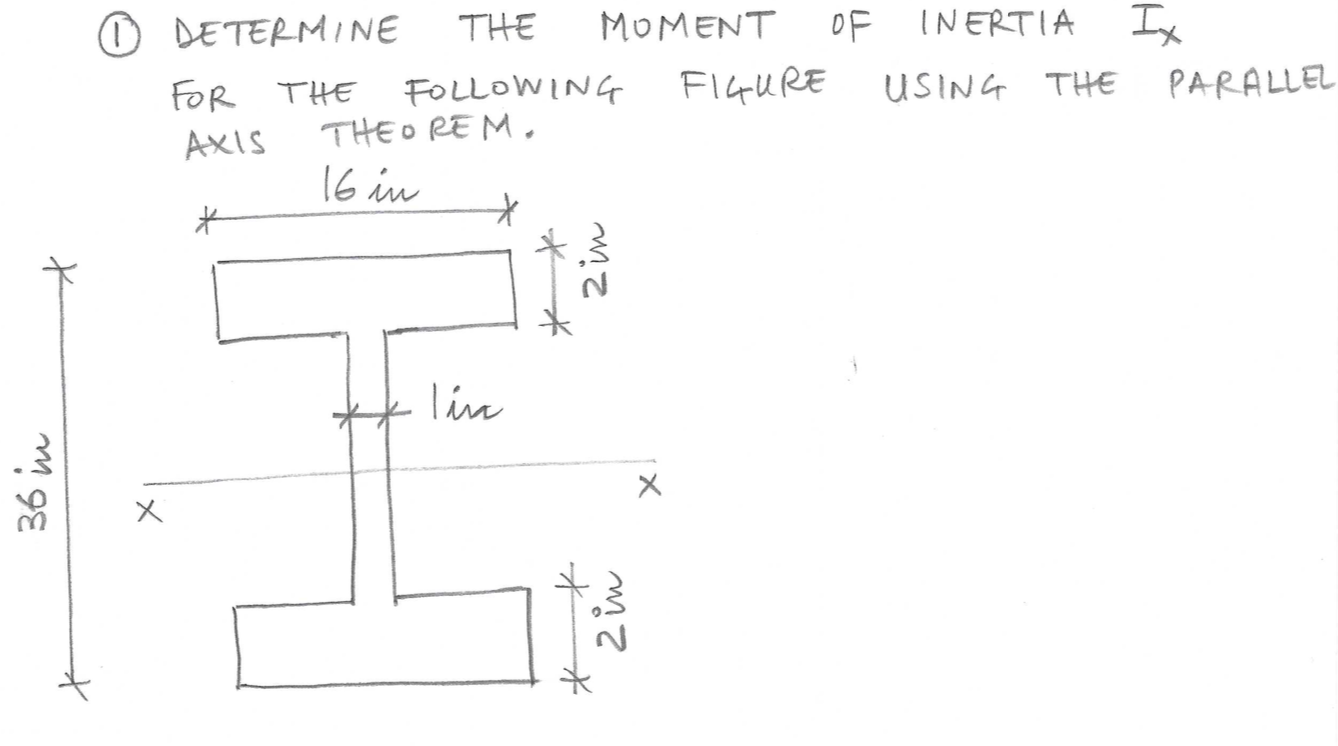 ① DETERMINE THE MOMENT OF INERTIA Ix
FOR THE FOLLOWING FIGURE USING THE PARALLEL
AXIS THEOREM.
16 in
2 in
1 in
36 in
X
X
2 in